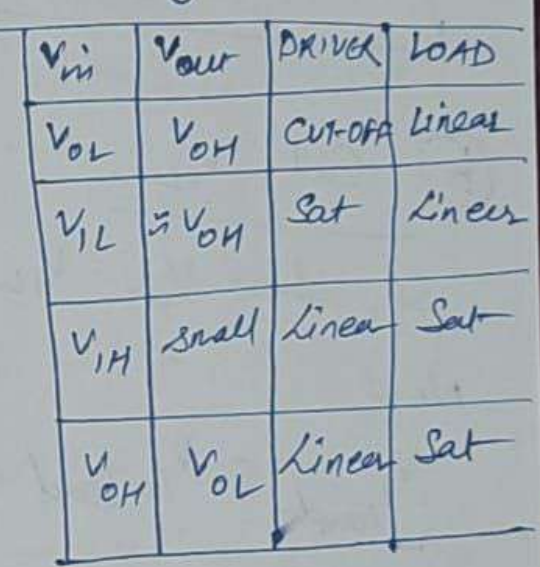 Vin Vout DRIVER LOAD
VOL VOH CUT-OFF Linear
VIL ≈VOH Sat Linear
VIH small Linear Sat
VOH VOL Linear Sat